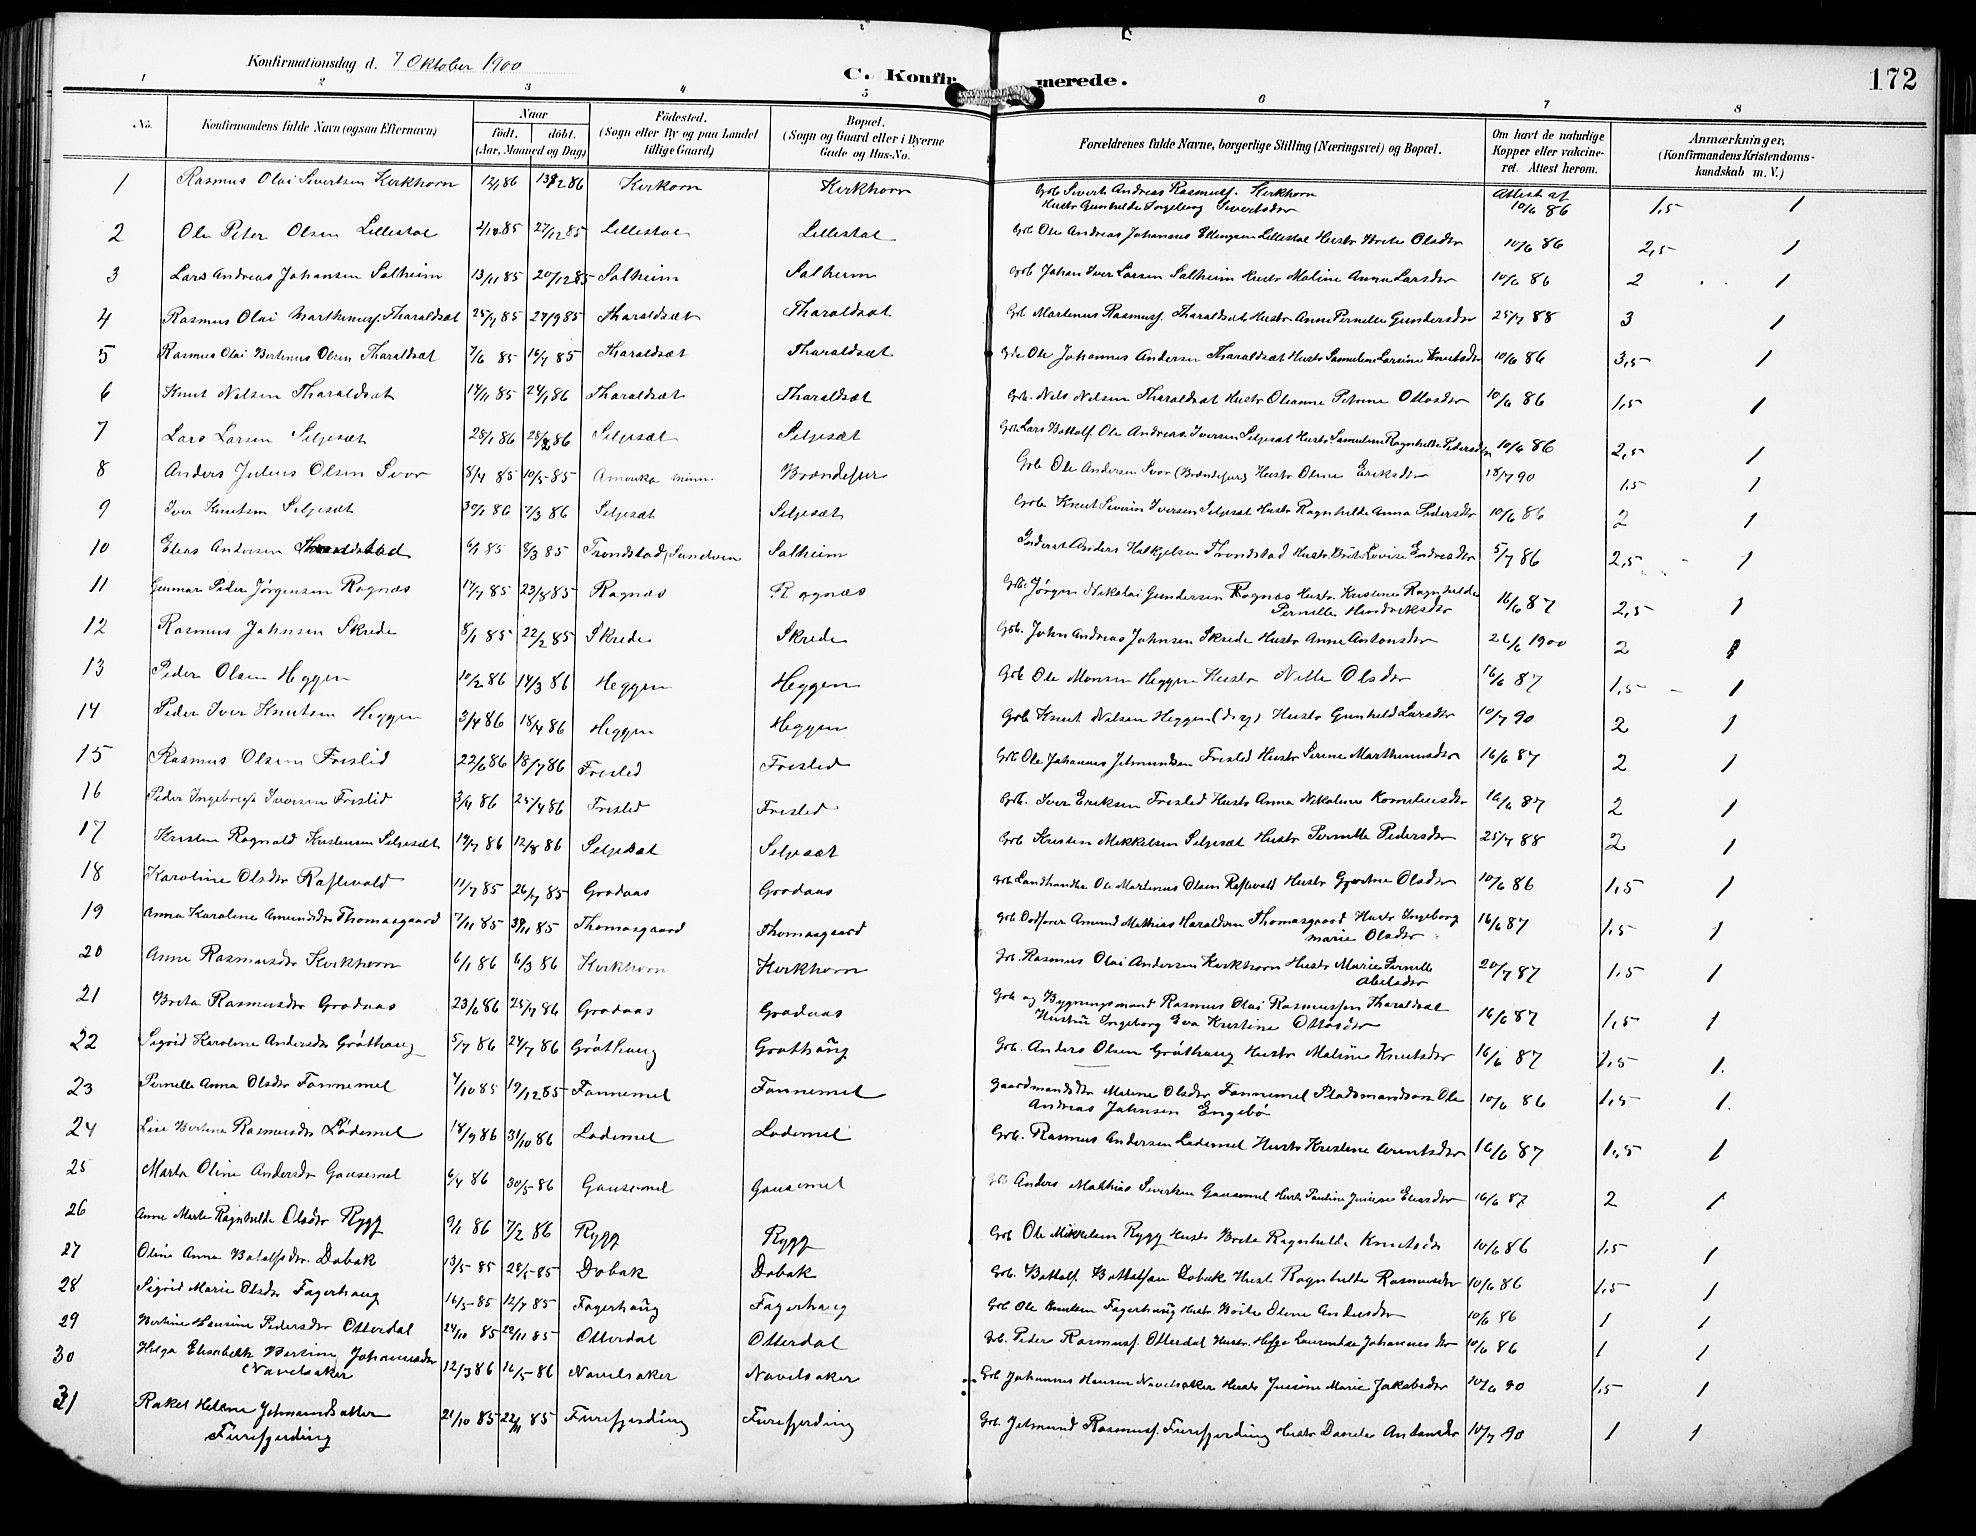 Konfirmationsdag d. 7 Oktober 1900
C. Konfirmerede.
172
1 2 3 4 5 6 7 8
No. | Konfirmandens fulde Navn (ogsaa Efternavn) | Naar født. døbt. (Aar, Maaned og Dag) | Fødested. (Sogn eller By og paa Landet tillige Gaard) | Bopæl. (Sogn og Gaard eller i Byerne Gade og Hus-No. | Forældrenes fulde Navne, borgerlige Stilling (Næringsvei) og Bopæl. | Om havt de naturlige Kopper eller vakcineret. Attest herom. | Anmærkninger, (Konfirmandens Kristendomskundskab m. V.)
1 Rasmus Olai Sivertsen Kirkhorn 12/1 86 13/2 86 Kirkorn Kirkhorn Gbr. Sivert Andreas Rasmusf. Kirkhorn Hustr Gunhilde Ingeborg Sivertsdtr Attest af 10/6 86 1,5 1
2 Ole Peter Olsen Lillestøl 85 27/12 85 Lillestøl Lillestøl Gbr Ole Andreas Johannes Ellingsen Lillestøl Hustr Brite Olsdtr 10/6 86 2,5 1
3 Lars Andreas Johansen Solheim 13/11 85 20/12 85 Solheim Solheim Gbr Johan Iver Larsen Solheim Hustr Maline Anna Larsdtr 10/6 86 2 1
4 Rasmus Olai Marthinusf. Tharaldsæt 25/7 85 27/9 85 Tharaldsæt Tharaldsæt Gbr Martinus Rasmusf. Tharaldsæt Hustr Anne Pernille Gundersdtr 25/7 88 3 1
5 Rasmus Olai Bertinus Olsen Tharaldsæt 7/6 85 16/7 85 Tharaldsæt Tharaldsæt Gbr Ole Johannes Andersen Tharaldsæt Hustr Samuline Larsine Knutsdtr 10/6 86 3,5 1
6 Knut Nilsen Tharaldsæt 14/11 85 24/1 86 Tharaldsæt Tharaldsæt Gbr. Nils Nilsen Tharaldsæt Hustr Oleanne Petrine Ottosdtr 10/6 86 1,5 1
7 Lars Larsen Seljesæt 28/1 86 28/2 86 Seljesæt Seljesæt Gbr Lars Bottolf. Ole Andreas Iversen Seljesæt Hustr Samuline Ragnhilde Pedersdtr 10/6 86 2,5 1
8 Anders Julius Olsen Svor 8/4 85 10/5 85 Amerika Minn. Brændefur Gbr Ole Andersen Svor (Brændefur) Hustr Oline Eriksdtr 18/7 90 1,5 1
9 Iver Knutsen Seljesæt 30/1 86 7/3 86 Seljesæt Seljesæt Gbr Knut Severin Iversen Seljesæt Hustr Ragnhilde Anna Pedersdtr 10/6 86 2 1
10 Elias Andersen 6/1 85 8/3 85 Trondstad, Sandven Solheim Inderst Anders Halkjelsen Trondstad Hustr Brite Lovise Endresdtr 5/7 86 2,5 1
11 Gunnar Peder Jørgensen Rognæs 17/7 85 23/8 85 Rognæs Rognæs Gbr. Jørgen Nikolai Gundersen Rognæs Hustr. Kristine Ragnhilde Pernille Hendriksdtr 16/6 87 2,5 1
12 Rasmus Johnsen Skrede 8/1 85 22/2 85 Skrede Skrede Gbr. John Andreas Johnsen Skrede Hustr Anne Antonsdtr 26/6 1900 2 1
13 Peder Olsen Heggen 10/2 86 14/3 86 Heggen Heggen Gbr Ole Monsen Heggen Hustr Nille Olsdtr 16/6 87 1,5 1
14 Peder Iver Knutsen Heggen 3/4 86 18/4 86 Heggen Heggen Gbr Knut Nilsen Heggen Hustr Gunhild Larsdtr 10/7 90 2 1
15 Rasmus Olsen Frislid 22/6 86 18/7 86 Frislid Frislid Gbr Ole Johannes Jetmundsen Frislid Hustr Serine Marthinusdtr 16/6 87 2 1
16 Peder Ingebrigt Iversen Frislid 3/4 86 25/4 86 Frislid Frislid Gbr. Iver Eriksen Frislid Hustr Anna Nikoline Korneliusdtr 16/6 87 2 1
17 Kristen Ragnvald Kristensen Seljesæt 14/7 86 12/8 86 Seljesæt Seljesæt Gbr Kristen Mikkelsen Seljesæt Hustr Pernille Pedersdtr 25/7 88 2 1
18 Karoline Olsdtr Raftevold 11/7 85 26/7 85 Grodaas Grodaas Gbr Landhandler Ole Martinus Olsen Raftevold Hustr Gjertine Olsdtr 10/6 86 1,5 1
19 Anna Karoline Amundsdtr Thomasgaard 7/11 85 /11 85 Thomasgaard Thomasgaard Gbr Amund Mathias Haraldsen Thomasgaard Hustr Ingeborg Marie Olsdtr 16/6 87 1,5 1
20 Anne Rasmusdtr Kirkhorn 6/1 86 6/3 86 Kirkhorn Kirkhorn Gbr. Rasmus Olai Andersen Kirkhorn Hustr Marie Pernille Abelsdtr 20/7 87 1,5 1
21 Brita Rasmusdtr Grodaas 23/6 86 25/7 86 Grodaas Grodaas Gbr og Bygningsmand Rasmus Olai Rasmussen Tharaldsæt Hustru Ingeborg Eva Kristine Ottosdtr 16/6 87 1,5 1
22 Sigrid Karoline Andersdtr Gröthaug 5/7 86 24/7 86 Gröthaug Grothaug Gbr. Anders Olsen Gröthaug Hustr Maline Knutsdtr 16/6 87 1,5 1.
23 Pernille Anna Olsdtr Fannemel 4/10 85 19/12 85 Fannemel Fannemel Gaardmandsdtr Maline Olsdtr Fannemel Pladsmandssøn Ole Andreas Johnsen Engebø 10/6 86 1,5 1.
24 Lise Bertine Rasmusdtr Lødemel 18/9 86 31/10 86 Lødemel Lødemel Gbr. Rasmus Andersen Lødemel Hustr Kristine Arntsdtr 16/6 87 1,5 1
25 Marta Oline Andersdtr Gausemel 6/4 86 30/5 86 Gausemel Gausemel Gbr Anders Mathias Sivertsen Gausemel Hustr Pauline Jensine Eliasdtr 16/6 87 2 1
26 Anne Marte Ragnhilde Olsdtr Rygg 9/1 86 7/2 86 Rygg Rygg Gbr Ole Mikkelsen Rygg Hustr Brite Ragnhilde Knutsdtr 10/6 86 1,5 1
27 Oline Anna Botolfsdtr. Dobak 13/5 85 28/5 85 Dobak Dobak Gbr. Bottolf Bottolfsen Dobak Hust Ragnhilde Rasmusdtr 10/6 86 1,5 1
28 Sigrid Marie Olsdtr Fagerhaug 16/5 85 12/7 85 Fagerhaug Fagerhaug Gbr Ole Knutsen Fagerhaug Hustr. Brite Oline Andersdtr 10/6 86 1 1
29 Bertine Hansine Pedersdtr Otterdal 24/10 85 22/11 85 Otterdal Otterdal Gbr. Peder Rasmusf. Otterdal Hustr. Helge Laurentse Johannesdtr 10/6 86 1 1
30 Helga Elisabeth Bertine Johannesdtr Navelsaker 12/3 86 16/5 86 Navelsaker Navelsaker Gbr Johannes Hansen Navelsaker Hustr Jensine Marie Jakobsdtr 10/6 90 1,5 1
31 Rakel Helene Jetmundsdatter Furefjerding 21/10 85 22/11 85 Furefjerding Furefjerding Gbr. Jetmund Rasmusf. Furefjerding Hustr Dorthe Antonsdtr 10/7 90 1 1